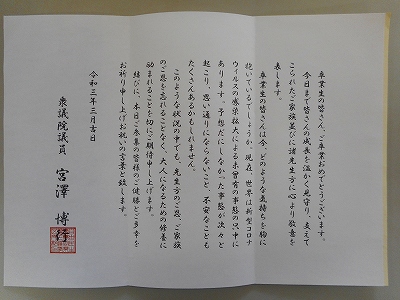 卒業生の皆さん、ご卒業おめでとうございます。
今日まで皆さんの成長を温かく見守り、支えて
こられたご家族並びに諸先生方に心より敬意を
表します。
卒業生の皆さんは今、どのような気持ちを胸に
抱いているでしょうか。現在、世界は新型コロナ
ウィルスの感染拡大による未曾有の事態の只中に
あります。予想だにしなかった事態が次々と
起こり、思い通りにならないこと、不安なことも
たくさんあるかもしれません。
このような状況の中でも、先生方のご恩、ご家族
のご恩を忘れることなく、大人になるための修養に
励まれることを切にご期待申し上げます。
結びに、本日ご参集の皆様のご健勝とご多幸を
お祈り申し上げお祝いの言葉と致します。
令和三年三月吉日
衆議院議員 宮澤 博行